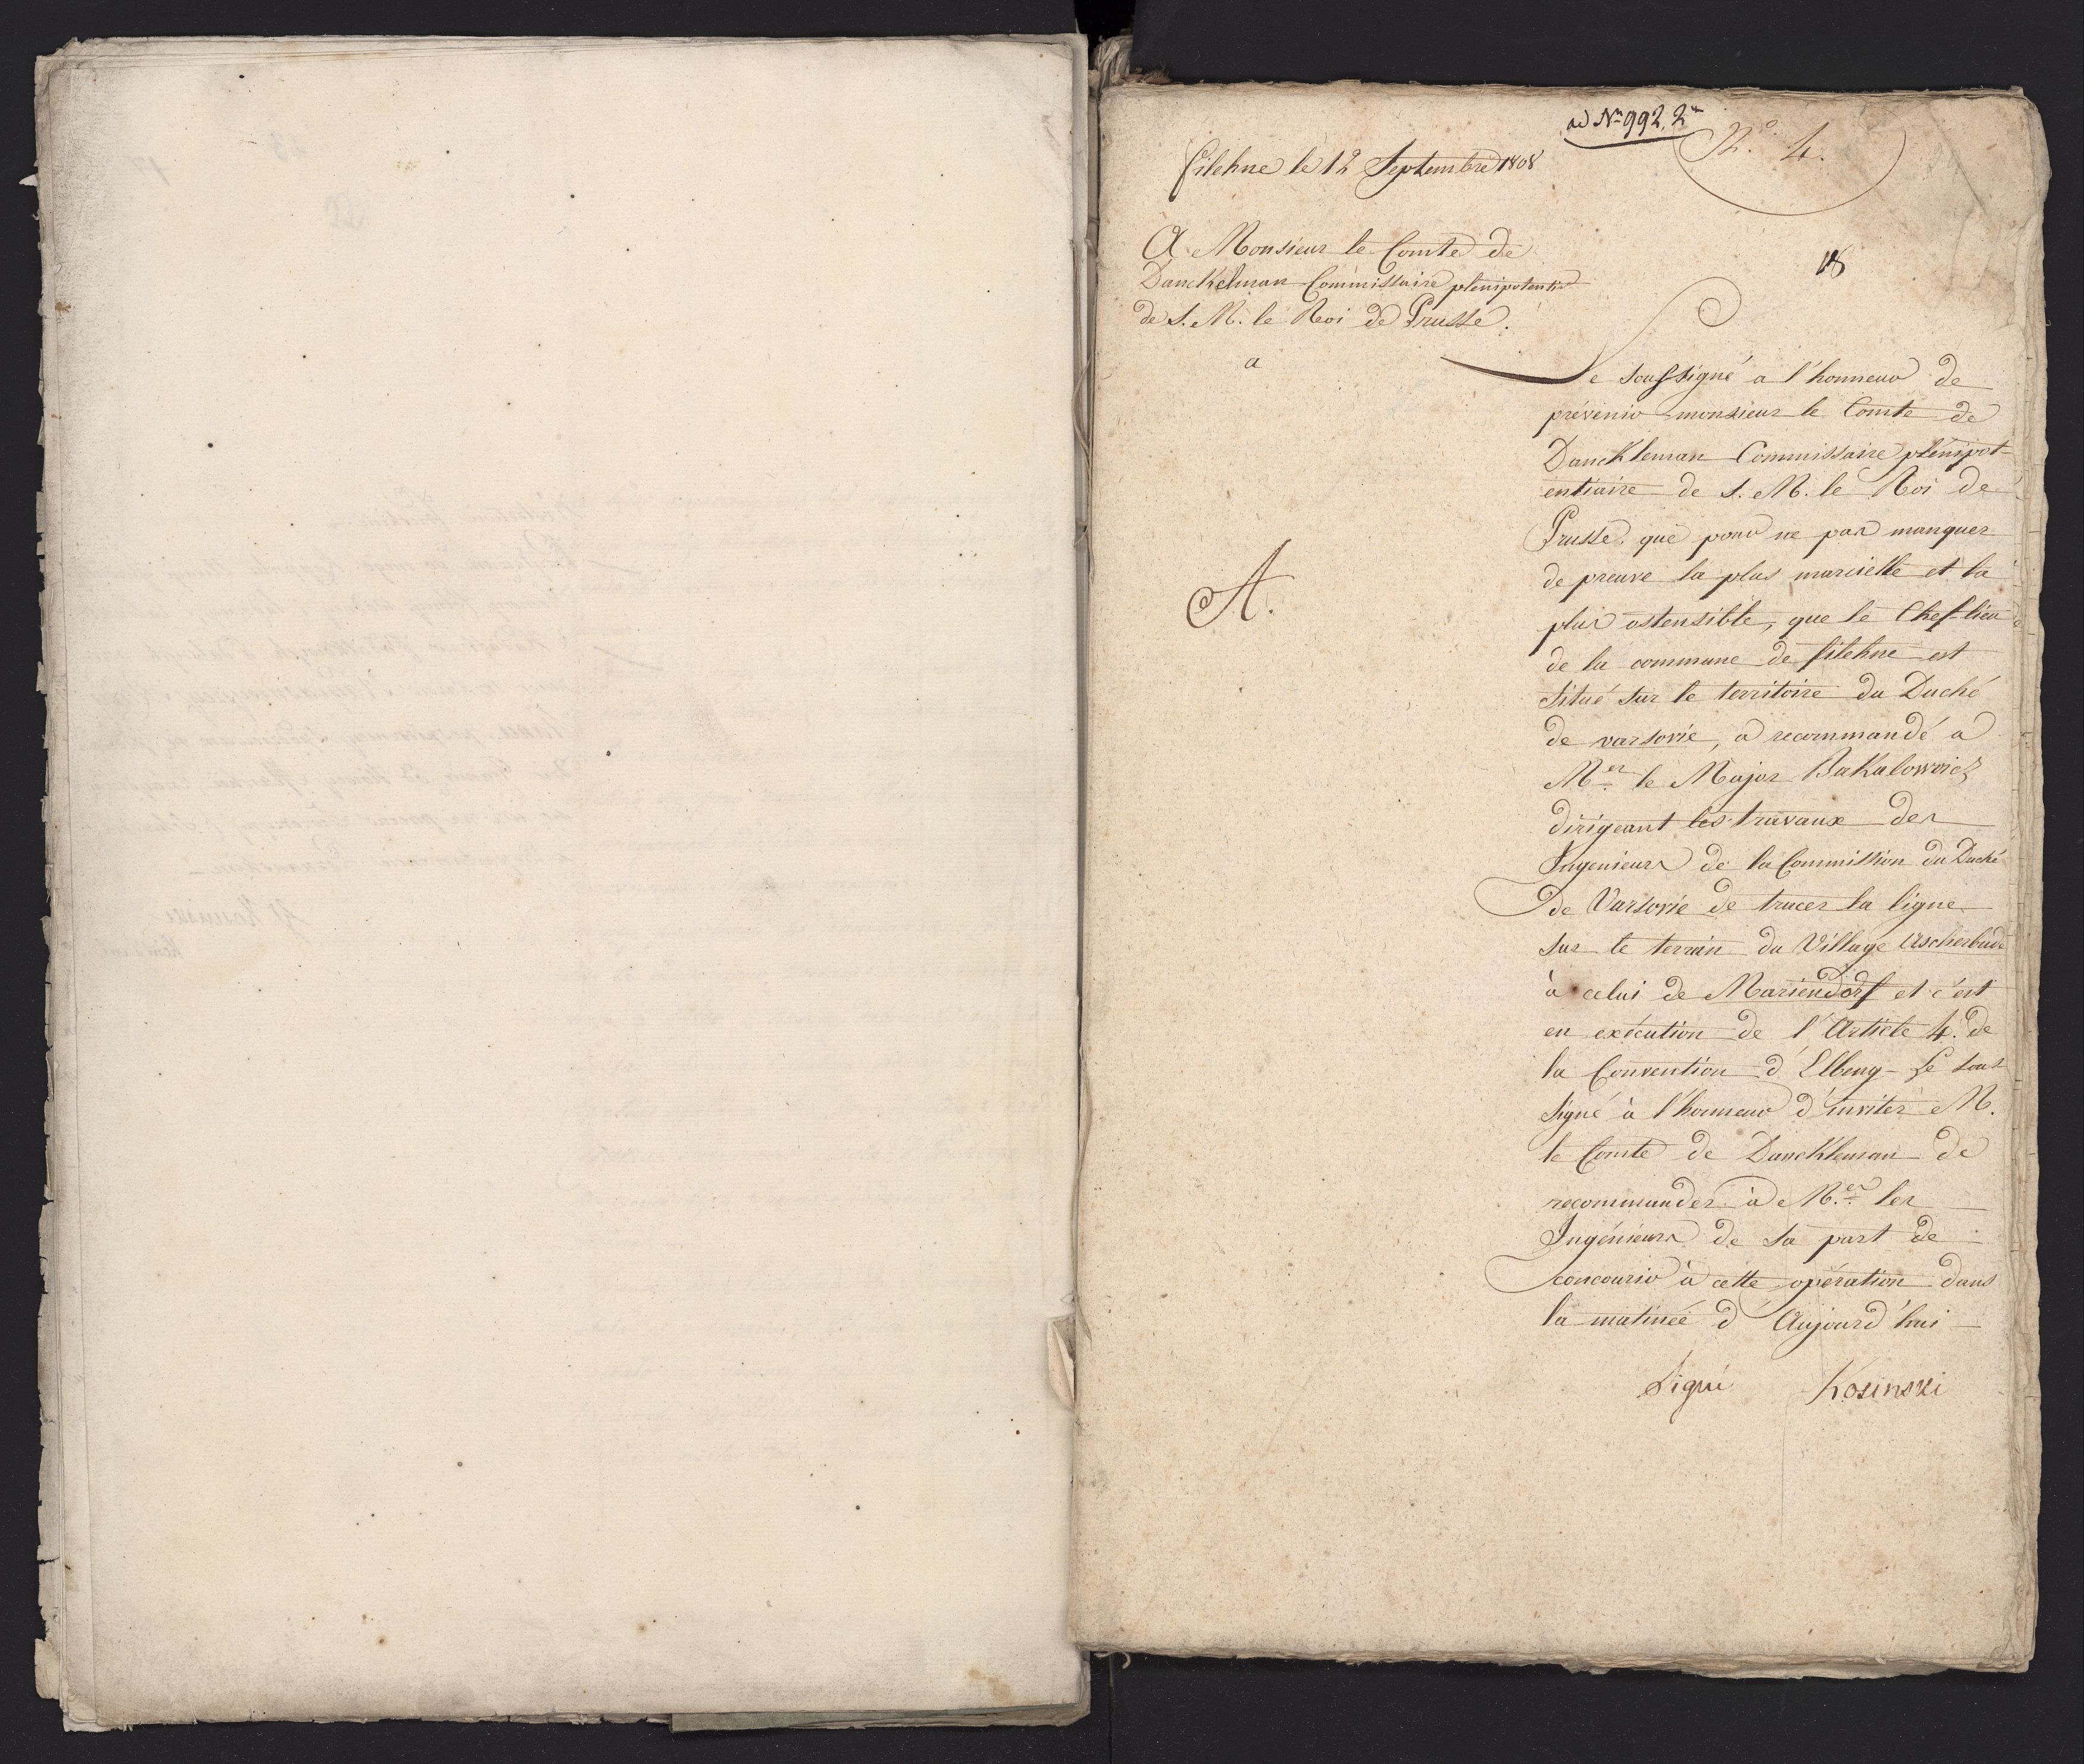 ad Nr 992. 2
No. 4.
filehne le 12 Septembre 1808
A Monsieur le Comte de
Danckelman Commissaire plenipotent
de S. M. le Roi de Prusse.
a
18
Le soussigné a l'honneur de
prévenir monsieur le Comte de
Danckleman Commissaire plénipot-
entiaire de S. M. le Roi de
Prusse, que pour ne pas manquer
de preuve la plus et la
plus ostensible, que le Chef-lieu
de la commune de filehne est
situé sur le territoire du Duché
de varsovie, a recommandé a
Mer le Major Bakalowicz
dirigeant les travaux des
Ingenieurs de la Commission du Duché
de Varsovie de tracer la ligne
sur le terrain du Village Ascherbude
à celui de Mariendorf et c'est
en exécution de l'Article 4. de
la Convention d'Elbing - Le sous
signé à l'honneur d'inviter M.
le Comte de Danckleman de
recommander à M.er les
Ingénieurs de sa part de
concourir à cette opération dans
la matinée d'Aujourd'hui
A.
Signé Kosinski